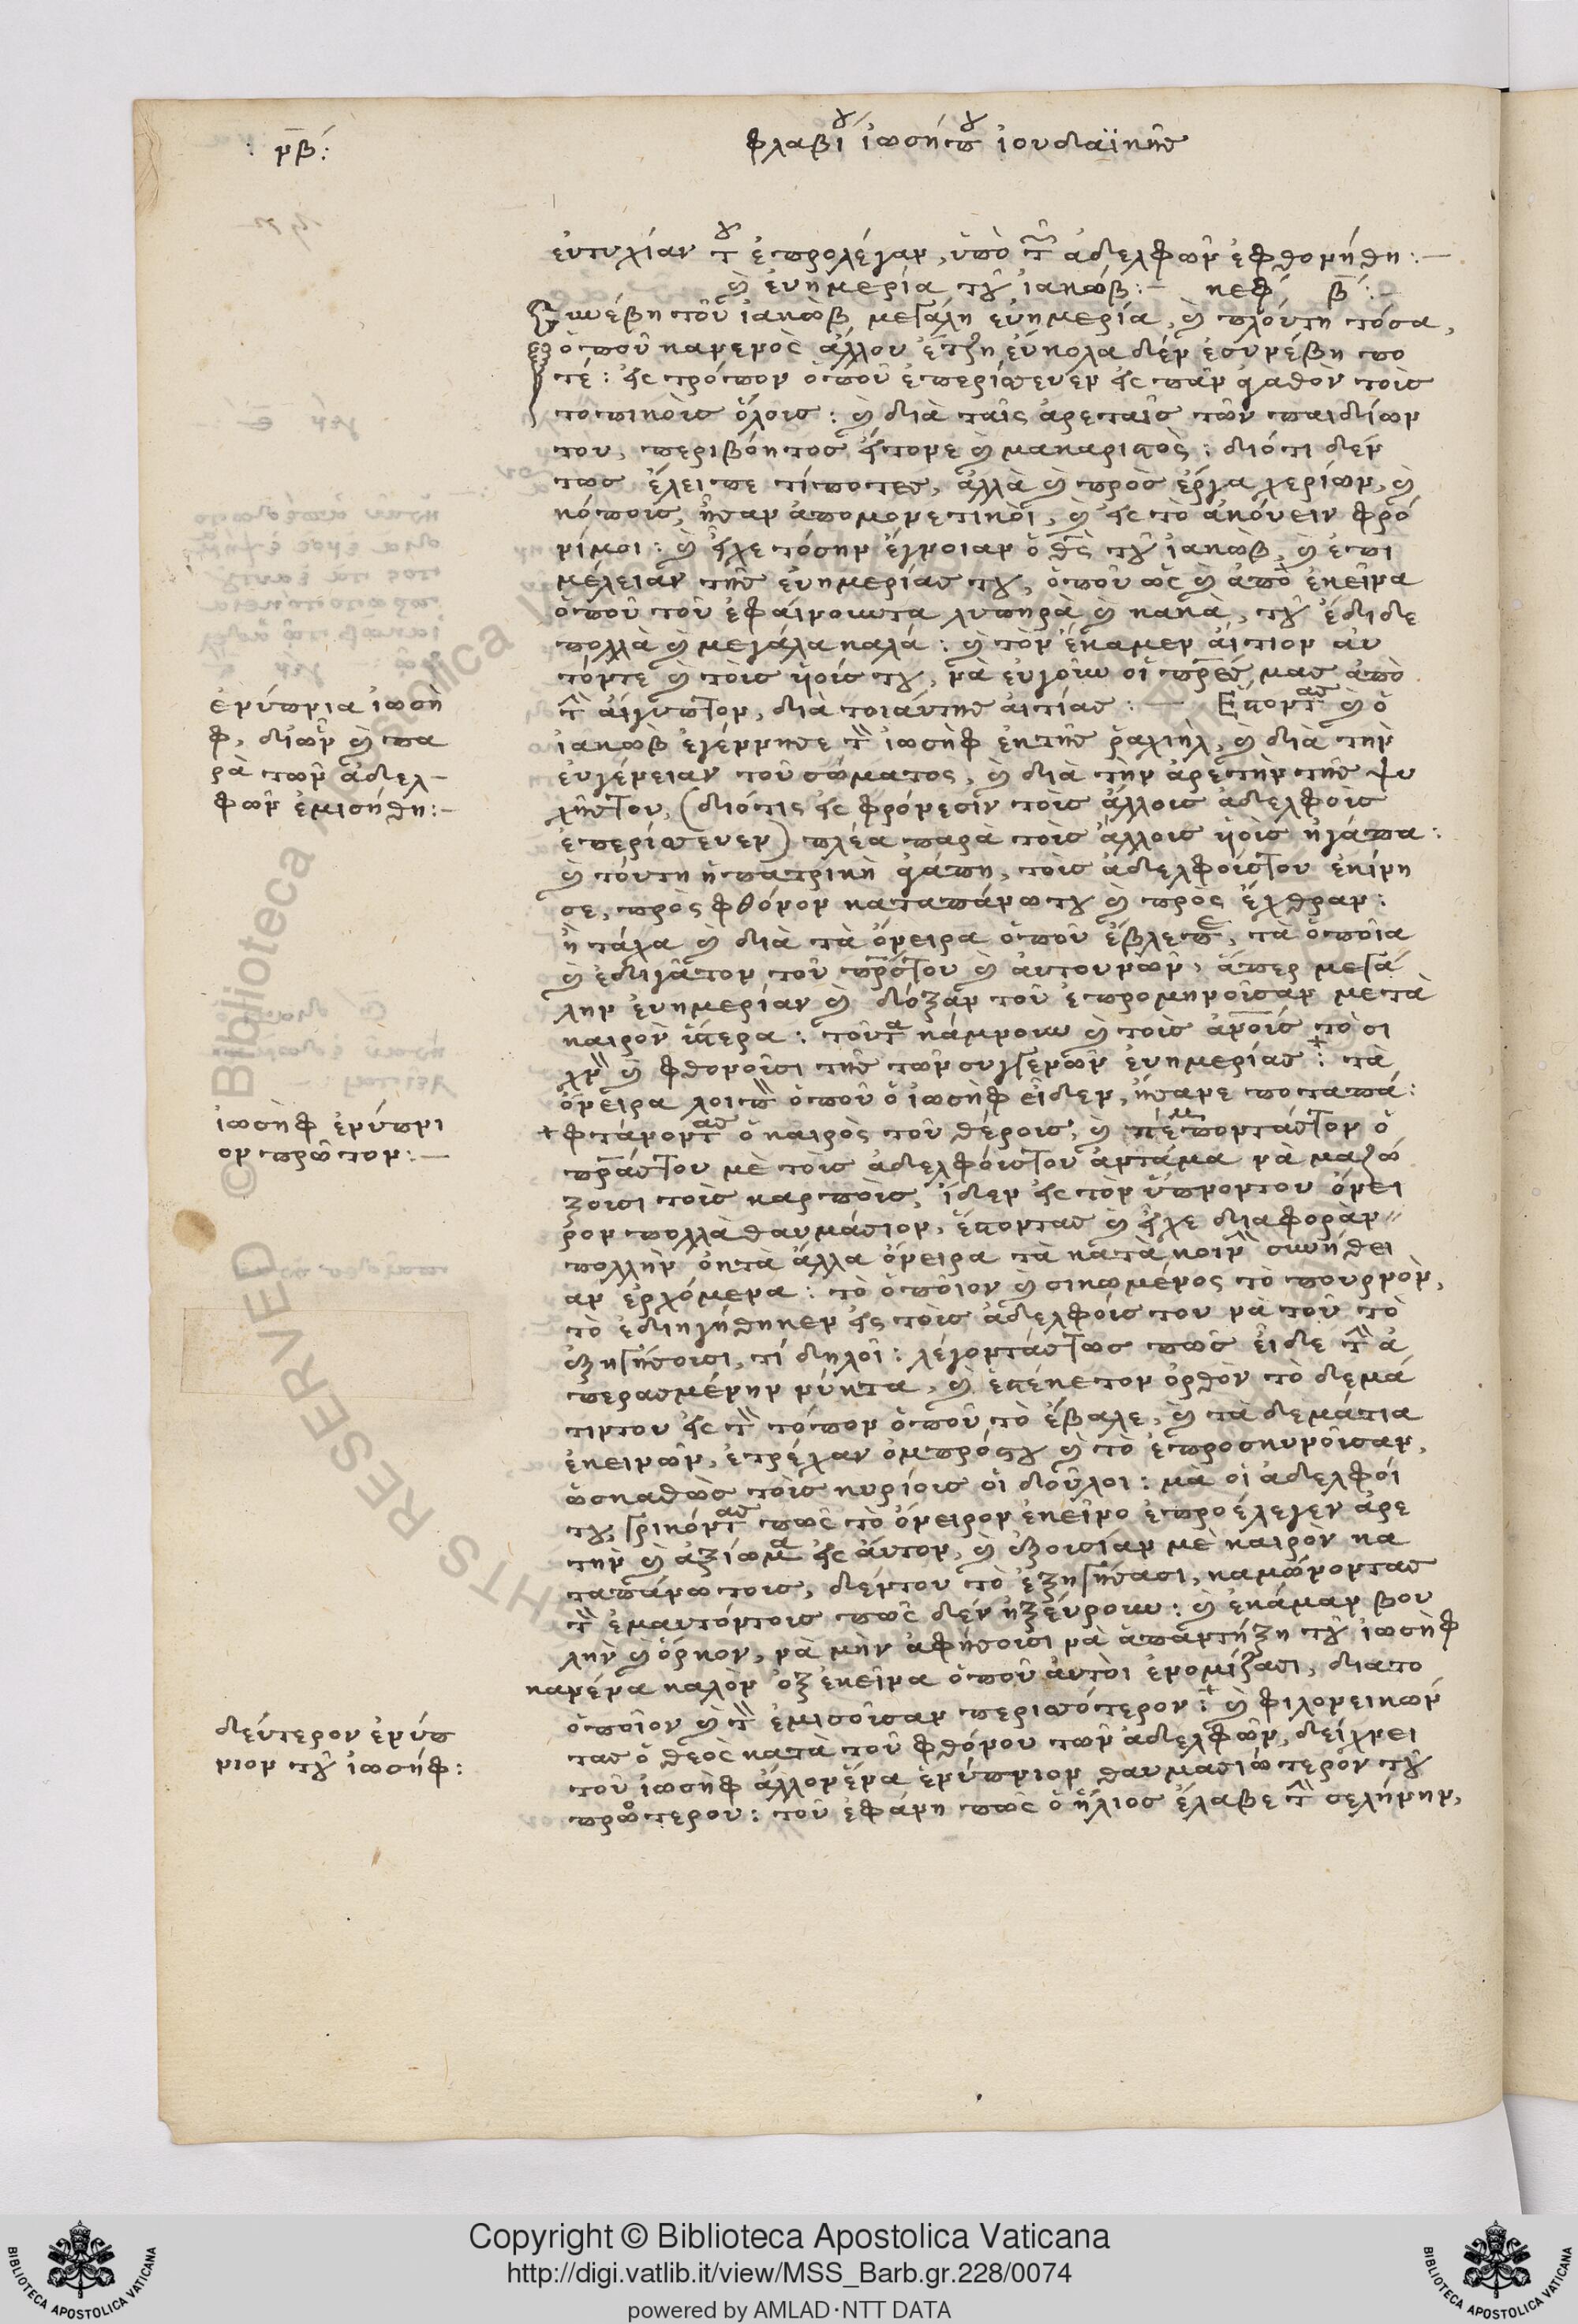 : νβ́:
φλαβίου ἰωσήπου ἰουδαϊκῆς
εὐτυχίαν του ἐπρολέγαν, ὑπὸ τῶν ἀδελφῶν ἐφθονήθη:—
ἡ εὐημερία τοῦ ἰακώβ:— κεφ β̄:—
Συνέβη τοῦ ἰακὼβ μεγάλη εὐημερία, καὶ πλούτη τόσα,
ὁποῦ κανενὸς ἄλλου ἔτζη εὔκολα δὲν ἐσυνέβη πο
τέ: εἰς τρόπον ὁποῦ ἐπερίσευεν εἰς πᾶν ἀγαθὸν τοὶς
τοπικοὶς ὅλοις: καὶ διὰ ταῖς ἀρεταῖς τῶν παιδίων
του, περιβόητος ἦτονε καὶ μακαριστὸς: διότι δὲν
τως ἔλειπε τίποτες, ἀλλὰ καὶ πρὸς ἔργα χεριῶν, καὶ
κόποις, ἦσαν ἀπομονετικοὶ, καὶ εἰς τὸ ἀκούειν φρό
νιμοι: καὶ εἶχε τόσην ἔγνοιαν ὁ θς τοῦ ἰακὼβ, καὶ ἐπι
μέλειαν τῆς εὐημερίας του, ὁποῦ ὡς καὶ ἀπὸ ἐκεῖνα
ὁποῦ τοῦ ἐφαίνουντα λυπηρὰ καὶ κακὰ, τοῦ ἔδιδε
πολλὰ καὶ μεγάλα καλά: καὶ τὸν ἔκαμεν αἴτιον αὐ
τόντε καὶ τοὶς ὑοίς του, νὰ εὐγοῦν οἱ πρες μας ἀπὸ
τὴν αἴγυπτον, διὰ τοιαύτης αἰτίας:— Ἔστοντας καὶ ὁ
ἰακὼβ ἐγέννησε τὸν ἰωσὴφ ἐκ τῆς ῥαχιὴλ, καὶ διὰ τὴν
εὐγένειαν τοῦ σώματος, καὶ διὰ τὴν ἀρετὴν τῆς ψυ
χῆς του, (διότις εἰς φρόνεσιν τοὶς ἄλλοις ἀδελφοὶς
ἐπερίσευεν) πλέα παρὰ τοὶς ἄλλοις ὑοὶς ἠγάπα:
καὶ τούτη ἡ πατρικὴ ἀγάπη, τοὶς ἀδελφοίς του ἐκίνη
σε, πρὸς φθόνον καταπάνω του καὶ πρὸς ἔχθραν:
ἢ τάχα καὶ διὰ τὰ ὄνειρα ὁποῦ ἔβλεπε, τὰ ὁποῖα
καὶ ἐδιγᾶτον τοῦ πρός του καὶ αὐτουνῶν, ἅπερ μεγά
λην εὐημερίαν καὶ δόξαν τοῦ ἐπρομηνοῦσαν μετὰ
καιρὸν ὕστερα: τοῦτα κάμνουν καὶ τοὶς ἀνοίς τόσι
χνὸν καὶ φθονοῦσι τῆς τῶν συγγενῶν εὐημερίας: τὰ
ὄνειρα λοιπὸν ὁποῦ ὁ ἰωσὴφ εἶδεν, ἦσανε ποταπά:
+ φτάνοντας ὁ καιρὸς τοῦ θέρους, καὶ πέμποντάς τον ὁ
πράς του μὲ τοὶς ἀδελφοίς του ἀντάμα νὰ μαζώ
ξουσι τοὶς καρποὶς, ἴδεν εἰς τὸν ὕπνον του ὄνει
ρον πολλὰ θαυμάσιον, ἔστοντας καὶ εἶχε διαφορὰν
πολλὴν ὀκ τὰ ἄλλα ὄνειρα τὰ κατὰ κοινὴν συνήθει
αν ἐρχόμενα: τὸ ὁποῖον καὶ σικωμένος τὸ πουρνὸν,
τὸ ἐδιηγήθηκεν εἰς τοὶς ἀδελφοίς του νὰ τοῦ τὸ
ἐξηγήσουσι, τί δηλοῖ: λέγοντάς τως πῶς εἶδε τὴν ἀ
περασμένην νύκτα, καὶ ἐστέκετον ὀρθὸν τὸ δεμά
τιν του εἰς τὸν τόπον ὁποῦ τὸ ἔβαλε, καὶ τὰ δεμάτια
ἐκεινῶν, ἐτρέχαν ὀμπρός του καὶ τὸ ἐπροσκυνοῦσαν,
ὡσκαθὼς τοὶς κυρίοις οἱ δοῦλοι: μὰ οἱ ἀδελφοί
του, γρικόντας πῶς τὸ ὄνειρον ἐκεῖνο ἐπροέλεγεν ἀρε
τὴν καὶ ἀξίωμα εἰς αὐτον, καὶ ἐξουσίαν μὲ καιρὸν κα
ταπάνω τοις, δέν του τὸ ἐξηγήσασι, καμώνοντας
τὸν ἐμαυτόν τοις πῶς δὲν ἠξεύρουν: καὶ ἐκάμαν βου
λὴν καὶ ὅρκον, νὰ μὴν ἀφήσουσι νὰ ἀπαντήξη τοῦ ἰωσὴφ
κανένα καλὸν ὀξ ἐκεῖνα ὁποῦ αὐτοὶ ἐνομίζασι, διατο
ὁποῖον καὶ τὸν ἐμισοῦσαν περισότερον: + καὶ φιλονεικῶν
τας ὁ θεὸς κατὰ τοῦ φθόνου τῶν ἀδελφῶν, δείχνει
τοῦ ἰωσὴφ ἄλλον ἕνα ἐνύπνιον θαυμασιώτερον τοῦ
πρώτερου: τοῦ ἐφάνη πῶς ὁ ἥλιος ἔλαβε τὴν σελήνην,
ἐνύπνια ἰωσὴ
φ, διῶν καὶ πα
ρὰ τῶν ἀδελ–
φῶν ἐμισήθη:—
ἰωσὴφ ἐνύπνι
ον πρῶτον:—
δεύτερον ἐνύπ
νιον τοῦ ἰωσήφ:
Copyright © Biblioteca Apostolica Vaticana
http://digi.vatlib.it/view/MSS_Barb.gr.228/0074
powered by AMLAD·NTT DATA
BIBLIOTECA APOSTOLICA VATICANA
BIBLIOTECA APOSTOLICA VATICANA